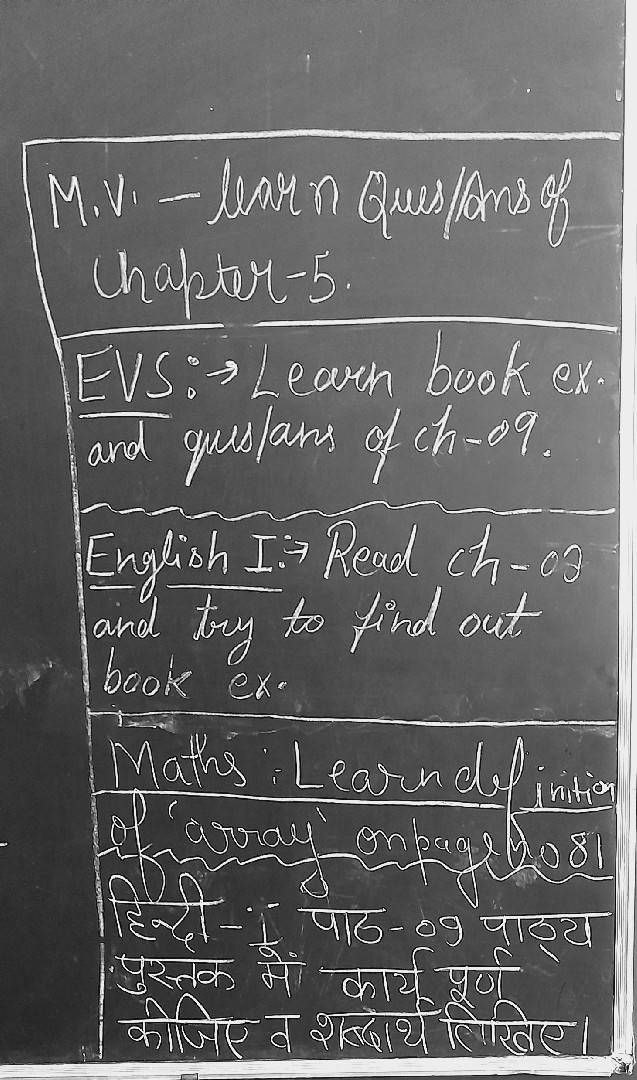 M.V. – learn Ques/Ans of
Chapter-5.
EVS:→ Learn book ex.
and ques/ans of ch-09.
English I:→ Read ch-02
and try to find out
book ex.
Maths : Learn definition
of 'array' on page no 81
हिन्दी-I पाठ-09 पाठ्य
पुस्तक में कार्य पूर्ण
कीजिए व शब्दार्थ लिखिए।